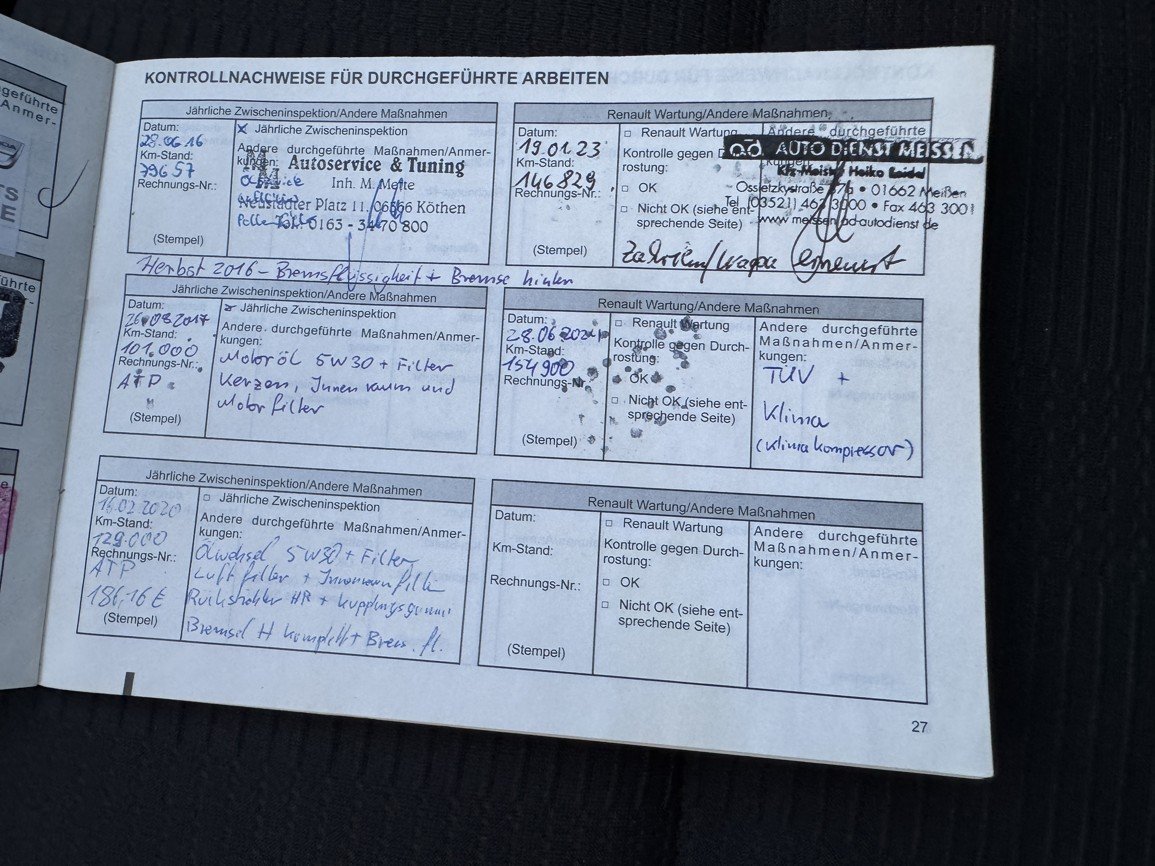 KONTROLLNACHWEISE FÜR DURCHGEFÜHRTE ARBEITEN
Jährliche Zwischeninspektion/Andere Maßnahmen
Datum:
28.06.16
Km-Stand:
79657
Rechnungs-Nr.:
(Stempel)
x Jährliche Zwischeninspektion
Andere durchgeführte Maßnahmen/Anmer-
kungen:
Autoservice & Tuning
Inh. M. Mette
Neustädter Platz 11, 06366 Köthen
Tel.: 0163 - 34 70 800
Herbst 2016 - Bremsflüssigkeit + Bremse hinten
Jährliche Zwischeninspektion/Andere Maßnahmen
Datum:
26.08.2017
Km-Stand:
101.000
Rechnungs-Nr.:
ATP
(Stempel)
Jährliche Zwischeninspektion
Andere durchgeführte Maßnahmen/Anmer-
kungen:
Motoröl 5W30 + Filter
Kerzen, Innenraum und
Motorfilter
Jährliche Zwischeninspektion/Andere Maßnahmen
Datum:
16.02.2020
Km-Stand:
129.000
Rechnungs-Nr.:
ATP
186,16 €
(Stempel)
□ Jährliche Zwischeninspektion
Andere durchgeführte Maßnahmen/Anmer-
kungen:
Ölwechsel 5W30 + Filter
Luftfilter + Innenraumfilter
HR +
Bremsen H komplett + Brems.fl.
Renault Wartung/Andere Maßnahmen
Datum:
19.01.23
Km-Stand:
146829
Rechnungs-Nr.:
(Stempel)
□ Renault Wartung
Kontrolle gegen
rostung:
□ OK
□ Nicht OK (siehe ent-
sprechende Seite)
Andere durchgeführte
ad AUTO DIENST MEISSEN
Kfz-Meister Heiko Seidel
Ossietzkystraße • 01662 Meißen
Tel. (03521) 463 3000 • Fax 463 3001
www.meissen.ad-autodienst.de
Zahnriemen/Wapu erneuert
Renault Wartung/Andere Maßnahmen
Datum:
28.06.2024
Km-Stand:
154900
Rechnungs-Nr.
(Stempel)
□ Renault Wartung
Kontrolle gegen Durch-
rostung:
□ OK
□ Nicht OK (siehe ent-
sprechende Seite)
Andere durchgeführte
Maßnahmen/Anmer-
kungen:
TÜV +
Klima
(Klimakompressor)
Renault Wartung/Andere Maßnahmen
Datum:
Km-Stand:
Rechnungs-Nr.:
(Stempel)
□ Renault Wartung
Kontrolle gegen Durch-
rostung:
□ OK
□ Nicht OK (siehe ent-
sprechende Seite)
Andere durchgeführte
Maßnahmen/Anmer-
kungen:
27